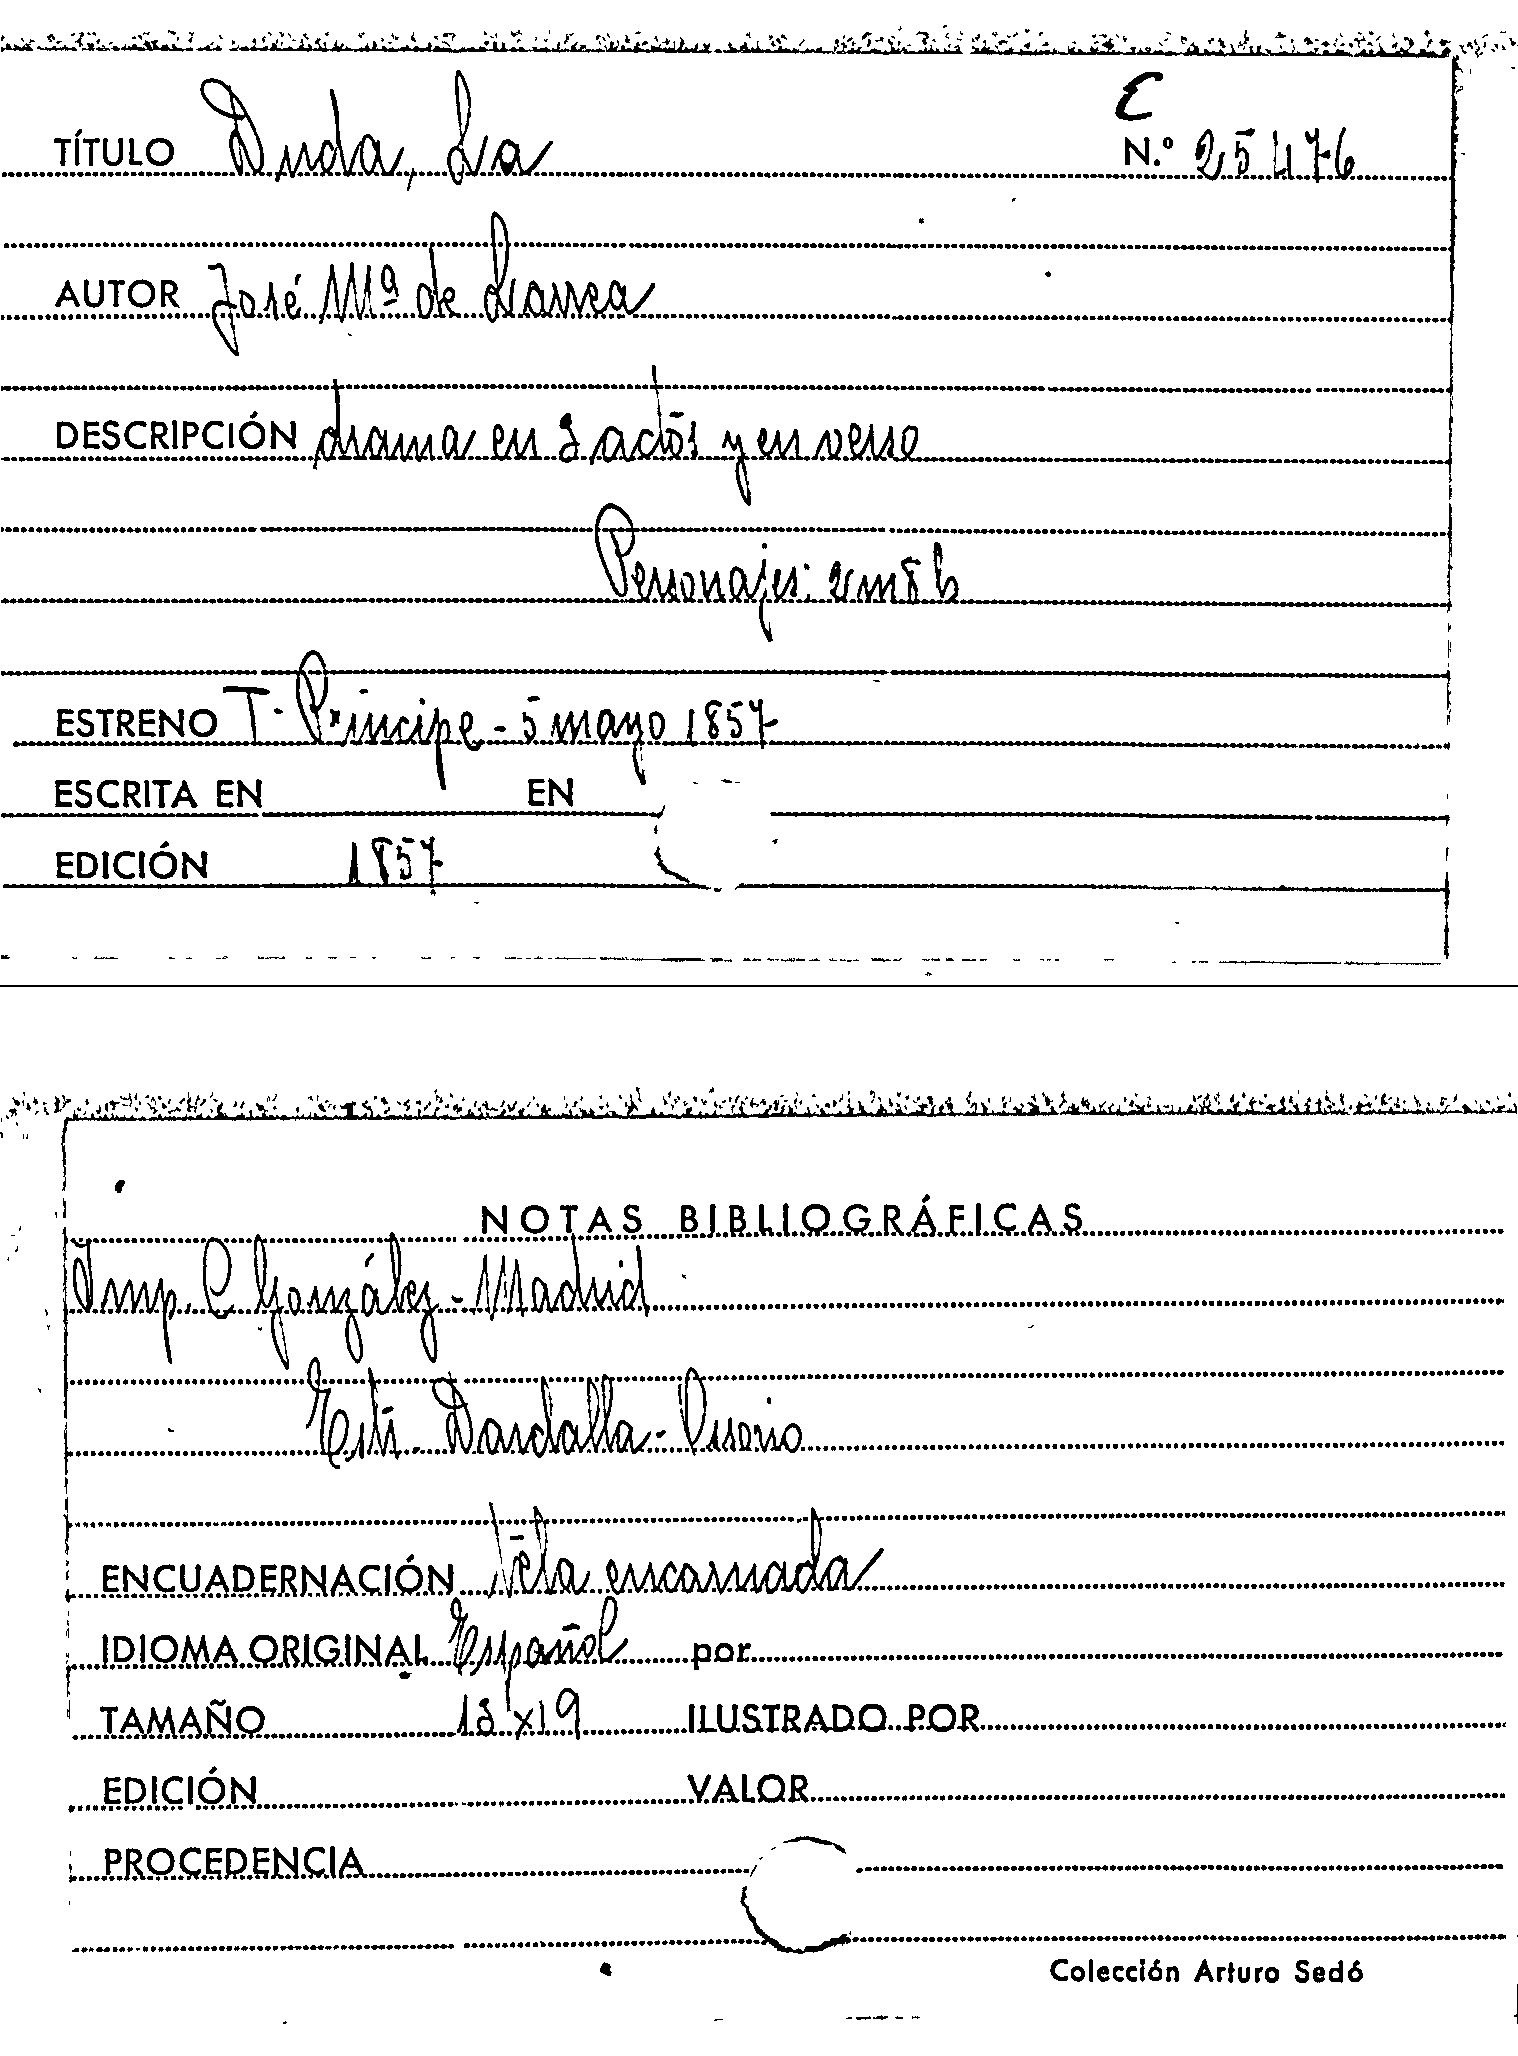 C
TÍTULO Duda, La N.º 25476
AUTOR José Mª de Larrea
DESCRIPCIÓN drama en 3 actos y en verso
Personajes: 2m 8h
ESTRENO T. Príncipe - 5 mayo 1857
ESCRITA EN EN
EDICIÓN 1857
NOTAS BIBLIOGRÁFICAS
Imp. C González - Madrid
Estr. Dardalla - Osorio
ENCUADERNACIÓN tela encarnada
IDIOMA ORIGINAL Español por
TAMAÑO 13 x 19 ILUSTRADO POR
EDICIÓN VALOR
PROCEDENCIA
Colección Arturo Sedó